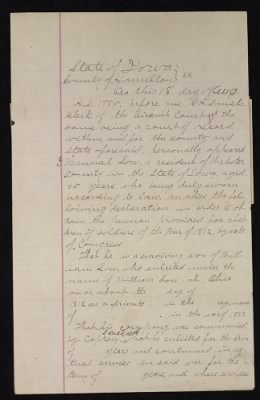 State of Iowa } ss
County of Hamilton
On this 18 day of Aug
A.D. 1880, before me
Clerk of the Circuit Court of the
same being a court of record
within and for the county and
State aforesaid, personally appeared
Low, a resident of Webster
County in the State of Iowa, aged
65 years who being duly sworn
according to law, makes the fol-
lowing declaration in order to ob-
tain the pension provided for child-
ren of soldiers of the War of 1812, by acts
of Congress
That he is a surviving son of Will-
iam Low, who enlisted under the
name of William Low, at Ohio
on or about the day of
1812 as a private in the regiment
of in the war of 1812
That his company was commanded
by Captain that he enlisted for the term
of years and continued in ac-
tual service in said war for the
term of years and whose services